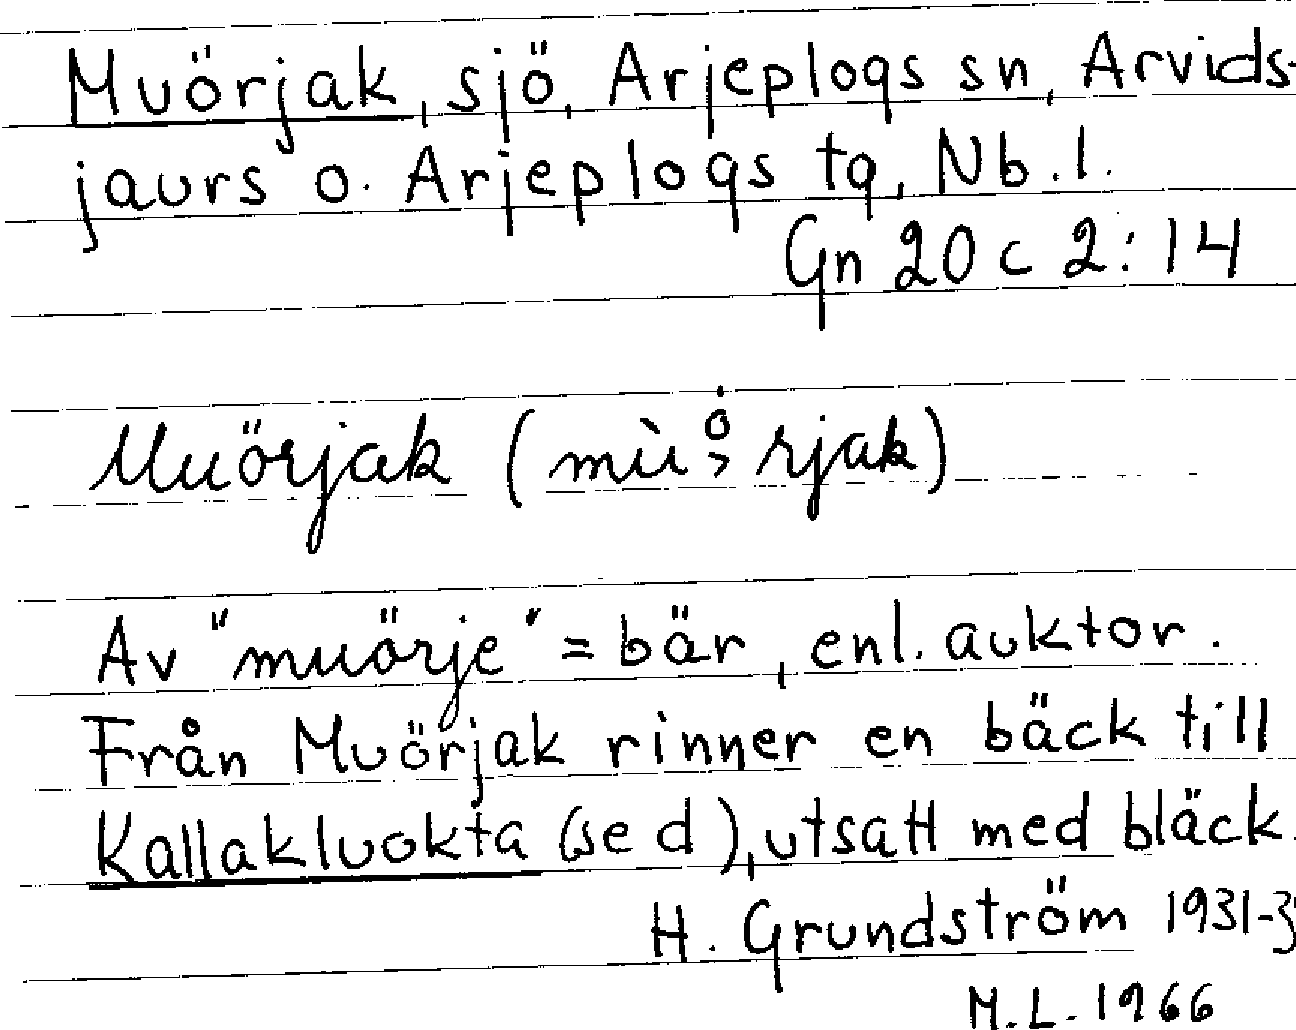 Muörjak, sjö, Arjeplogs sn, Arvids-
jaurs o. Arjeplogs tg, Nb.l.
Gn 20 c 2:14
Muörjak (mùo̊rjak)
Av "muörje" = bär, enl. auktor.
Från Muörjak rinner en bäck till
Kallakluokta (se d), utsatt med bläck.
H. Grundström 1931-3
M.L. 1966